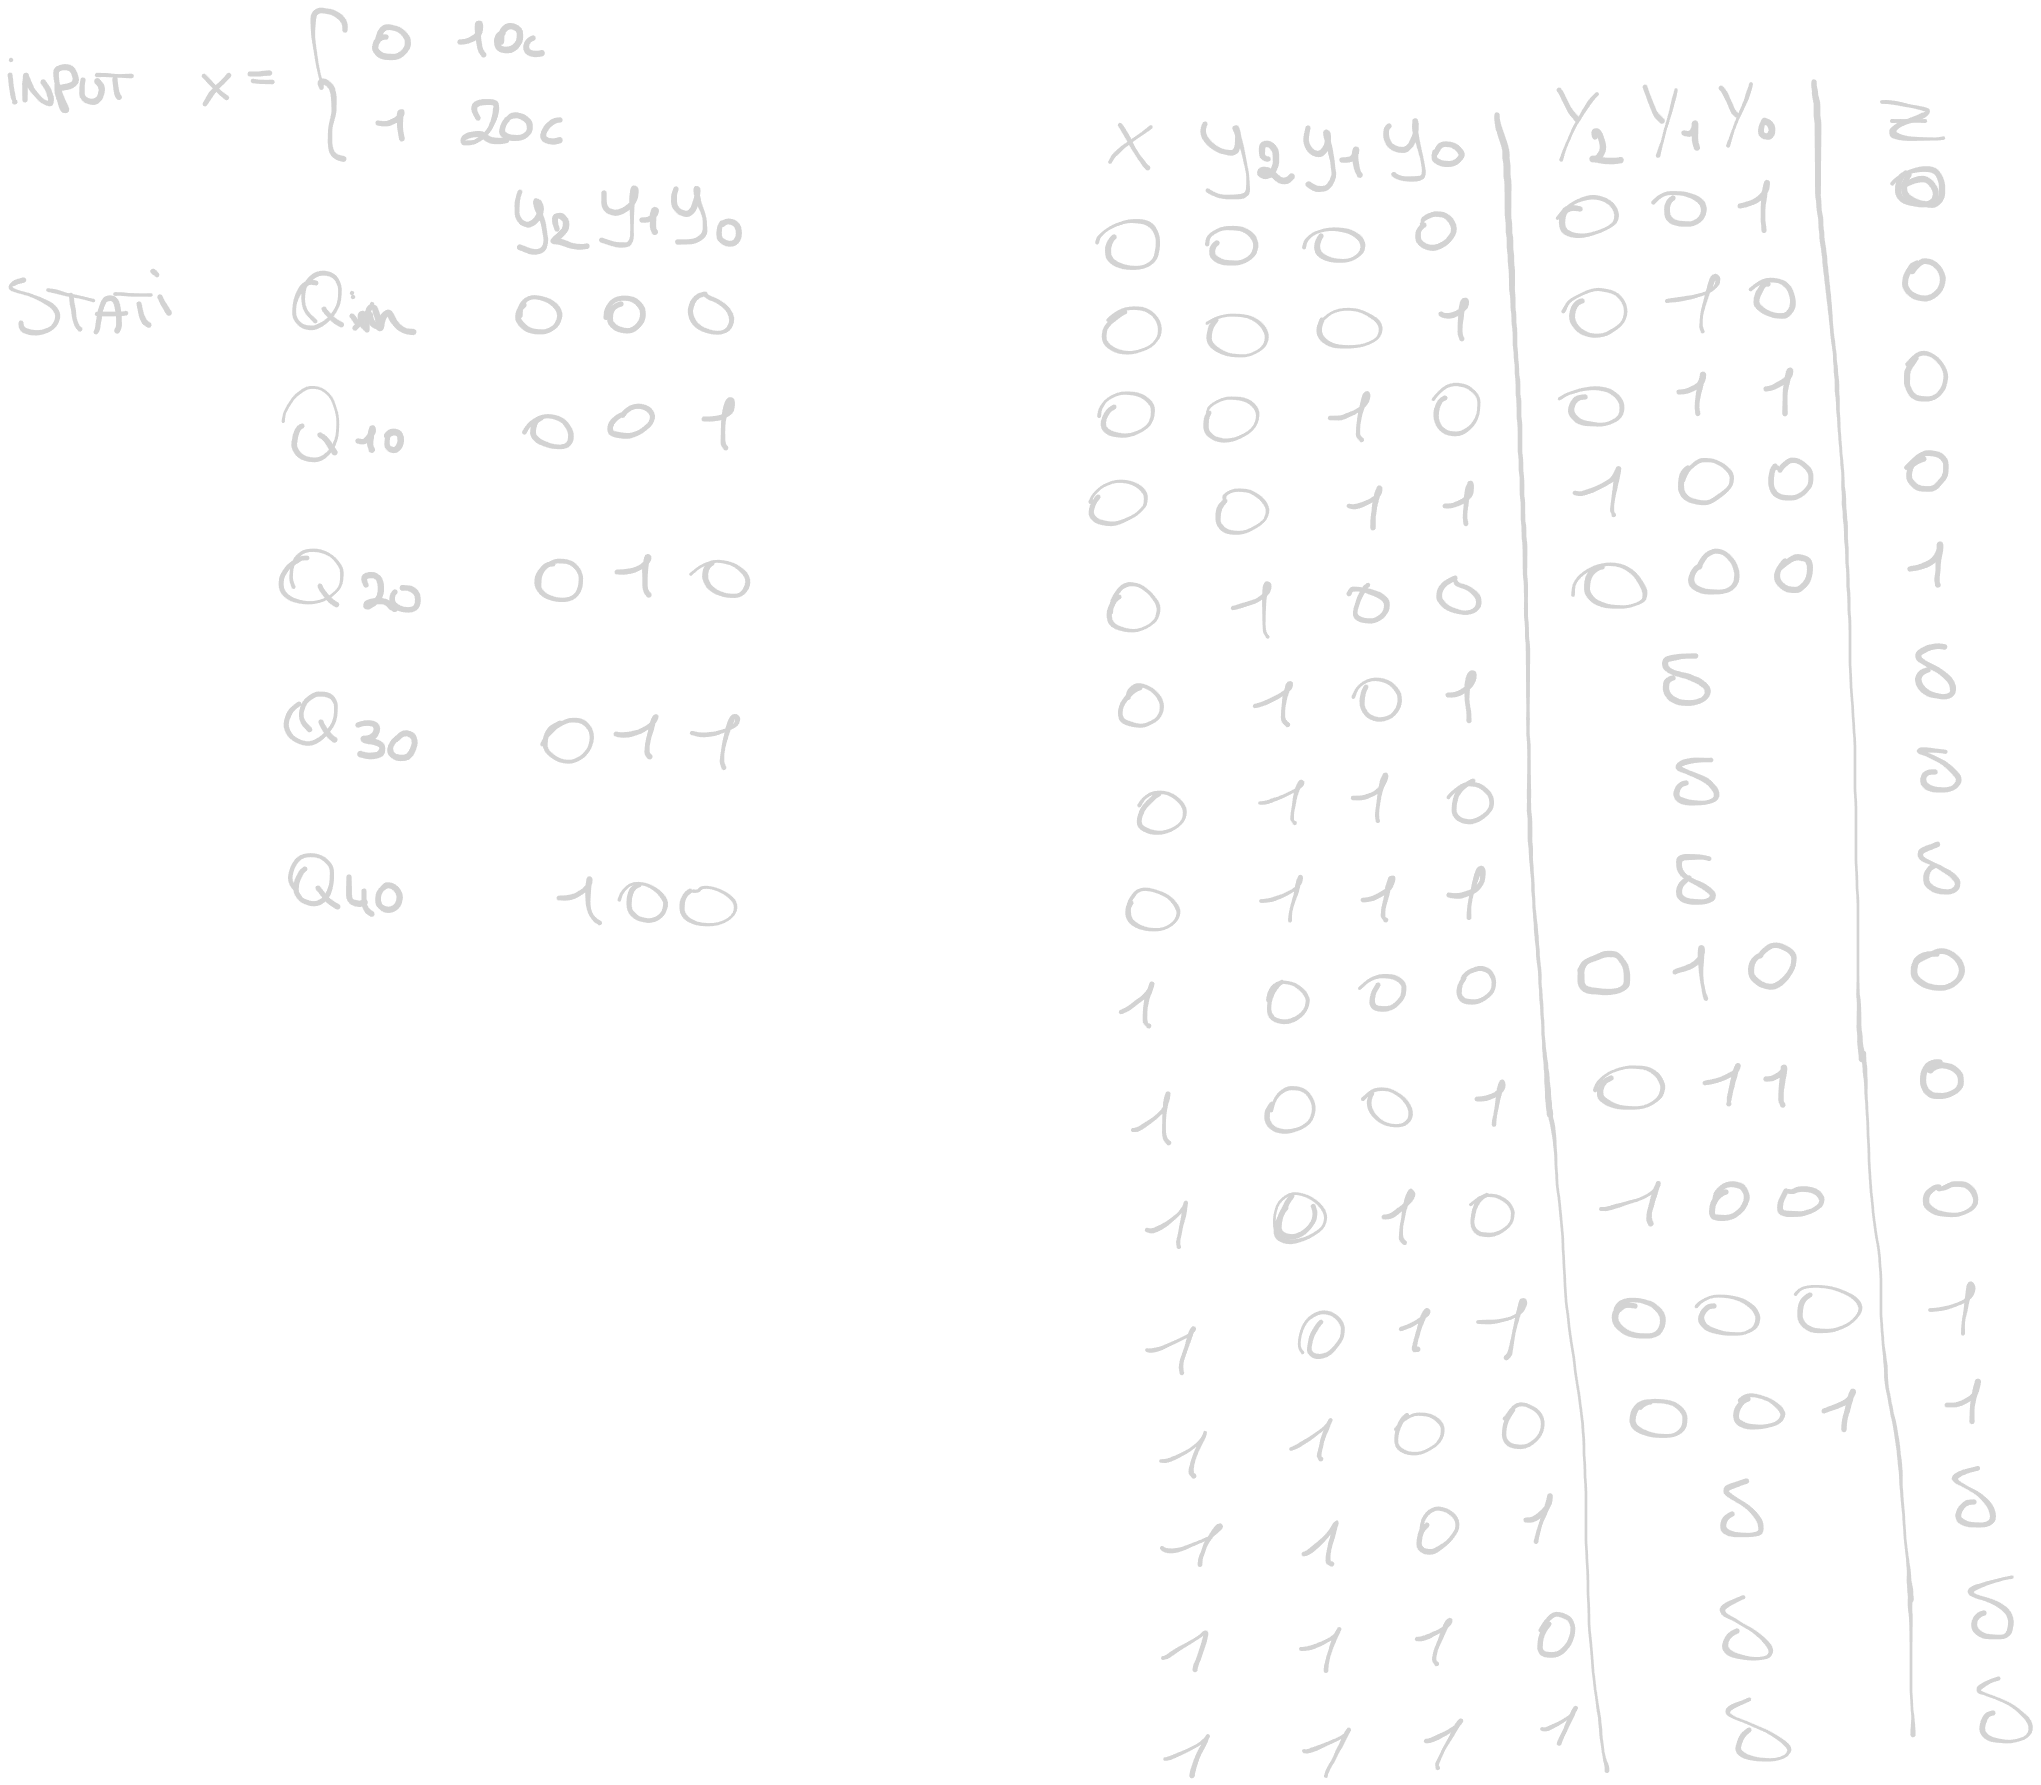 input x = { 0 10c
1 20c
y2 y1 y0
STATI Qin 0 0 0
Q10 0 0 1
Q20 0 1 0
Q30 0 1 1
Q40 1 0 0
X y2 y1 y0 | Y2 Y1 Y0 | Z
0 0 0 0 | 0 0 1 | 0
0 0 0 1 | 0 1 0 | 0
0 0 1 0 | 0 1 1 | 0
0 0 1 1 | 1 0 0 | 0
0 1 0 0 | 0 0 0 | 1
0 1 0 1 | δ | δ
0 1 1 0 | δ | δ
0 1 1 1 | δ | δ
1 0 0 0 | 0 1 0 | 0
1 0 0 1 | 0 1 1 | 0
1 0 1 0 | 1 0 0 | 0
1 0 1 1 | 0 0 0 | 1
1 1 0 0 | 0 0 1 | 1
1 1 0 1 | δ | δ
1 1 1 0 | δ | δ
1 1 1 1 | δ | δ